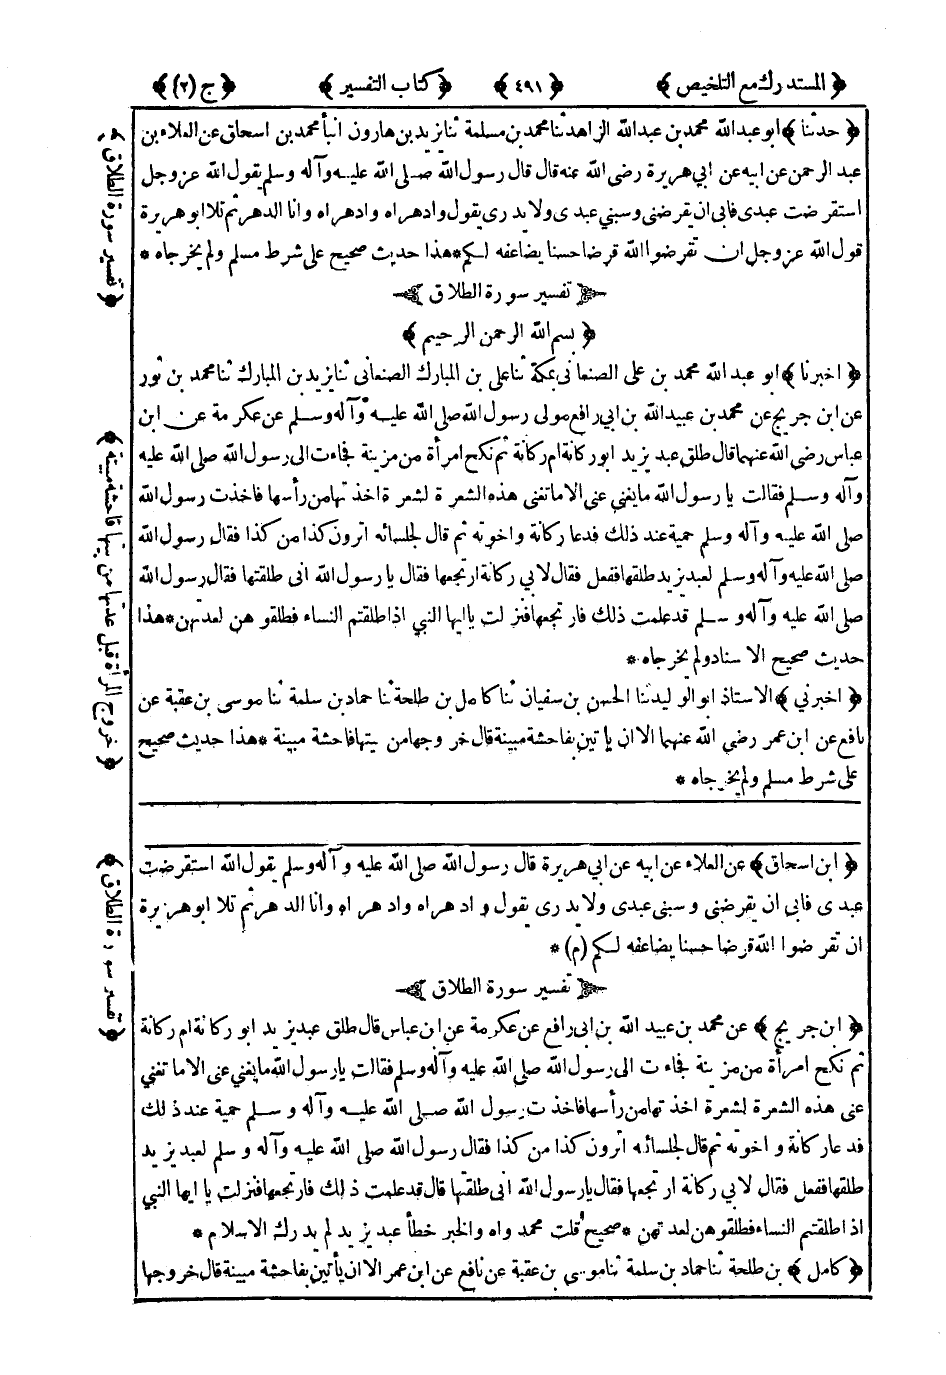 ﴿ المستدرك مع التلخيص ﴾ ﴿ ٤٩١ ﴾ ﴿ كتاب التفسير ﴾ ﴿ ج (٢) ﴾
﴿ حدثنا ﴾ ابو عبد الله محمد بن عبد الله الزاهد ثنا محمد بن مسلمة ثنا يزيد بن هارون انبأ محمد بن اسحاق عن العلاء بن
عبد الرحمن عن ابيه عن ابي هريرة رضى الله عنه قال قال رسول الله صلى الله عليه وآله وسلم يقول الله عز وجل
استقرضت عبدى فابى ان يقرضنى وسبنى عبدى ولا يدرى يقول وادهراه وادهراه وادهراه وانا الدهر ثم تلا ابو هريرة
قول الله عز وجل ان تقرضوا الله قرضا حسنا يضاعفه لكم * هذا حديث صحيح على شرط مسلم ولم يخرجاه *
تفسير سورة الطلاق
﴿ بسم الله الرحمن الرحيم ﴾
﴿ اخبرنا ﴾ ابو عبد الله محمد بن على الصنعانى بمكة ثنا على بن المبارك الصنعانى ثنا يزيد بن المبارك ثنا محمد بن ثور
عن ابن جريج عن محمد بن عبيد الله بن ابي رافع مولى رسول الله صلى الله عليه وآله وسلم عن عكرمة عن ابن
عباس رضى الله عنهما قال طلق عبد يزيد ابو ركانة ام ركانة ثم نكح امرأة من مزينة فجاءت الى رسول الله صلى الله عليه
وآله وسلم فقالت يا رسول الله ما يغنى عنى الا ما تغنى هذه الشعرة لشعرة اخذتها من رأسها فاخذت رسول الله
صلى الله عليه وآله وسلم حمية عند ذلك فدعا ركانة واخوته ثم قال لجلسائه اترون كذا من كذا فقال رسول الله
صلى الله عليه وآله وسلم لعبد يزيد طلقها ففعل فقال لابي ركانة ارتجعها فقال يا رسول الله انى طلقتها فقال رسول الله
صلى الله عليه وآله وسلم قد علمت ذلك فارتجعها فنزلت يا ايها النبي اذا طلقتم النساء فطلقوهن لعدتهن * هذا
حديث صحيح الاسناد ولم يخرجاه *
﴿ اخبرني ﴾ الاستاذ ابو الوليد ثنا الحسن بن سفيان ثنا كامل بن طلحة ثنا حماد بن سلمة ثنا موسى بن عقبة عن
نافع عن ابن عمر رضى الله عنهما الا ان يأتين بفاحشة مبينة قال خروجها من بيتها فاحشة مبينة * هذا حديث صحيح
على شرط مسلم ولم يخرجاه *
﴿ ابن اسحاق ﴾ عن العلاء عن ابيه عن ابي هريرة قال رسول الله صلى الله عليه وآله وسلم يقول الله استقرضت
عبدى فابى ان يقرضنى وسبنى عبدى ولا يدرى يقول وادهراه وادهراه وانا الدهر ثم تلا ابو هريرة
ان تقرضوا الله قرضا حسنا يضاعفه لكم (م) *
تفسير سورة الطلاق
﴿ ابن جريج ﴾ عن محمد بن عبيد الله بن ابى رافع عن عكرمة عن ابن عباس قال طلق عبد يزيد ابو ركانة ام ركانة
ثم نكح امرأة من مزينة فجاءت الى رسول الله صلى الله عليه وآله وسلم فقالت يا رسول الله ما يغنى عنى الا ما تغنى
عنى هذه الشعرة لشعرة اخذتها من رأسها فاخذت رسول الله صلى الله عليه وآله وسلم حمية عند ذلك
فدعا ركانة واخوته ثم قال لجلسائه اترون كذا من كذا فقال رسول الله صلى الله عليه وآله وسلم لعبد يزيد
طلقها ففعل فقال لابي ركانة ارتجعها فقال يا رسول الله انى طلقتها قال قد علمت ذلك فارتجعها فنزلت يا ايها النبي
اذا طلقتم النساء فطلقوهن لعدتهن * صحيح قلت محمد واه والخبر خطأ عبد يزيد لم يدرك الاسلام *
﴿ كامل ﴾ بن طلحة ثنا حماد بن سلمة ثنا موسى بن عقبة عن نافع عن ابن عمر الا ان يأتين بفاحشة مبينة قال خروجها
﴿ تفسير سورة الطلاق ﴾
﴿ خروج المرأة قبل عدتها من بيتها فاحشة مبينة ﴾
﴿ تفسير سورة الطلاق ﴾